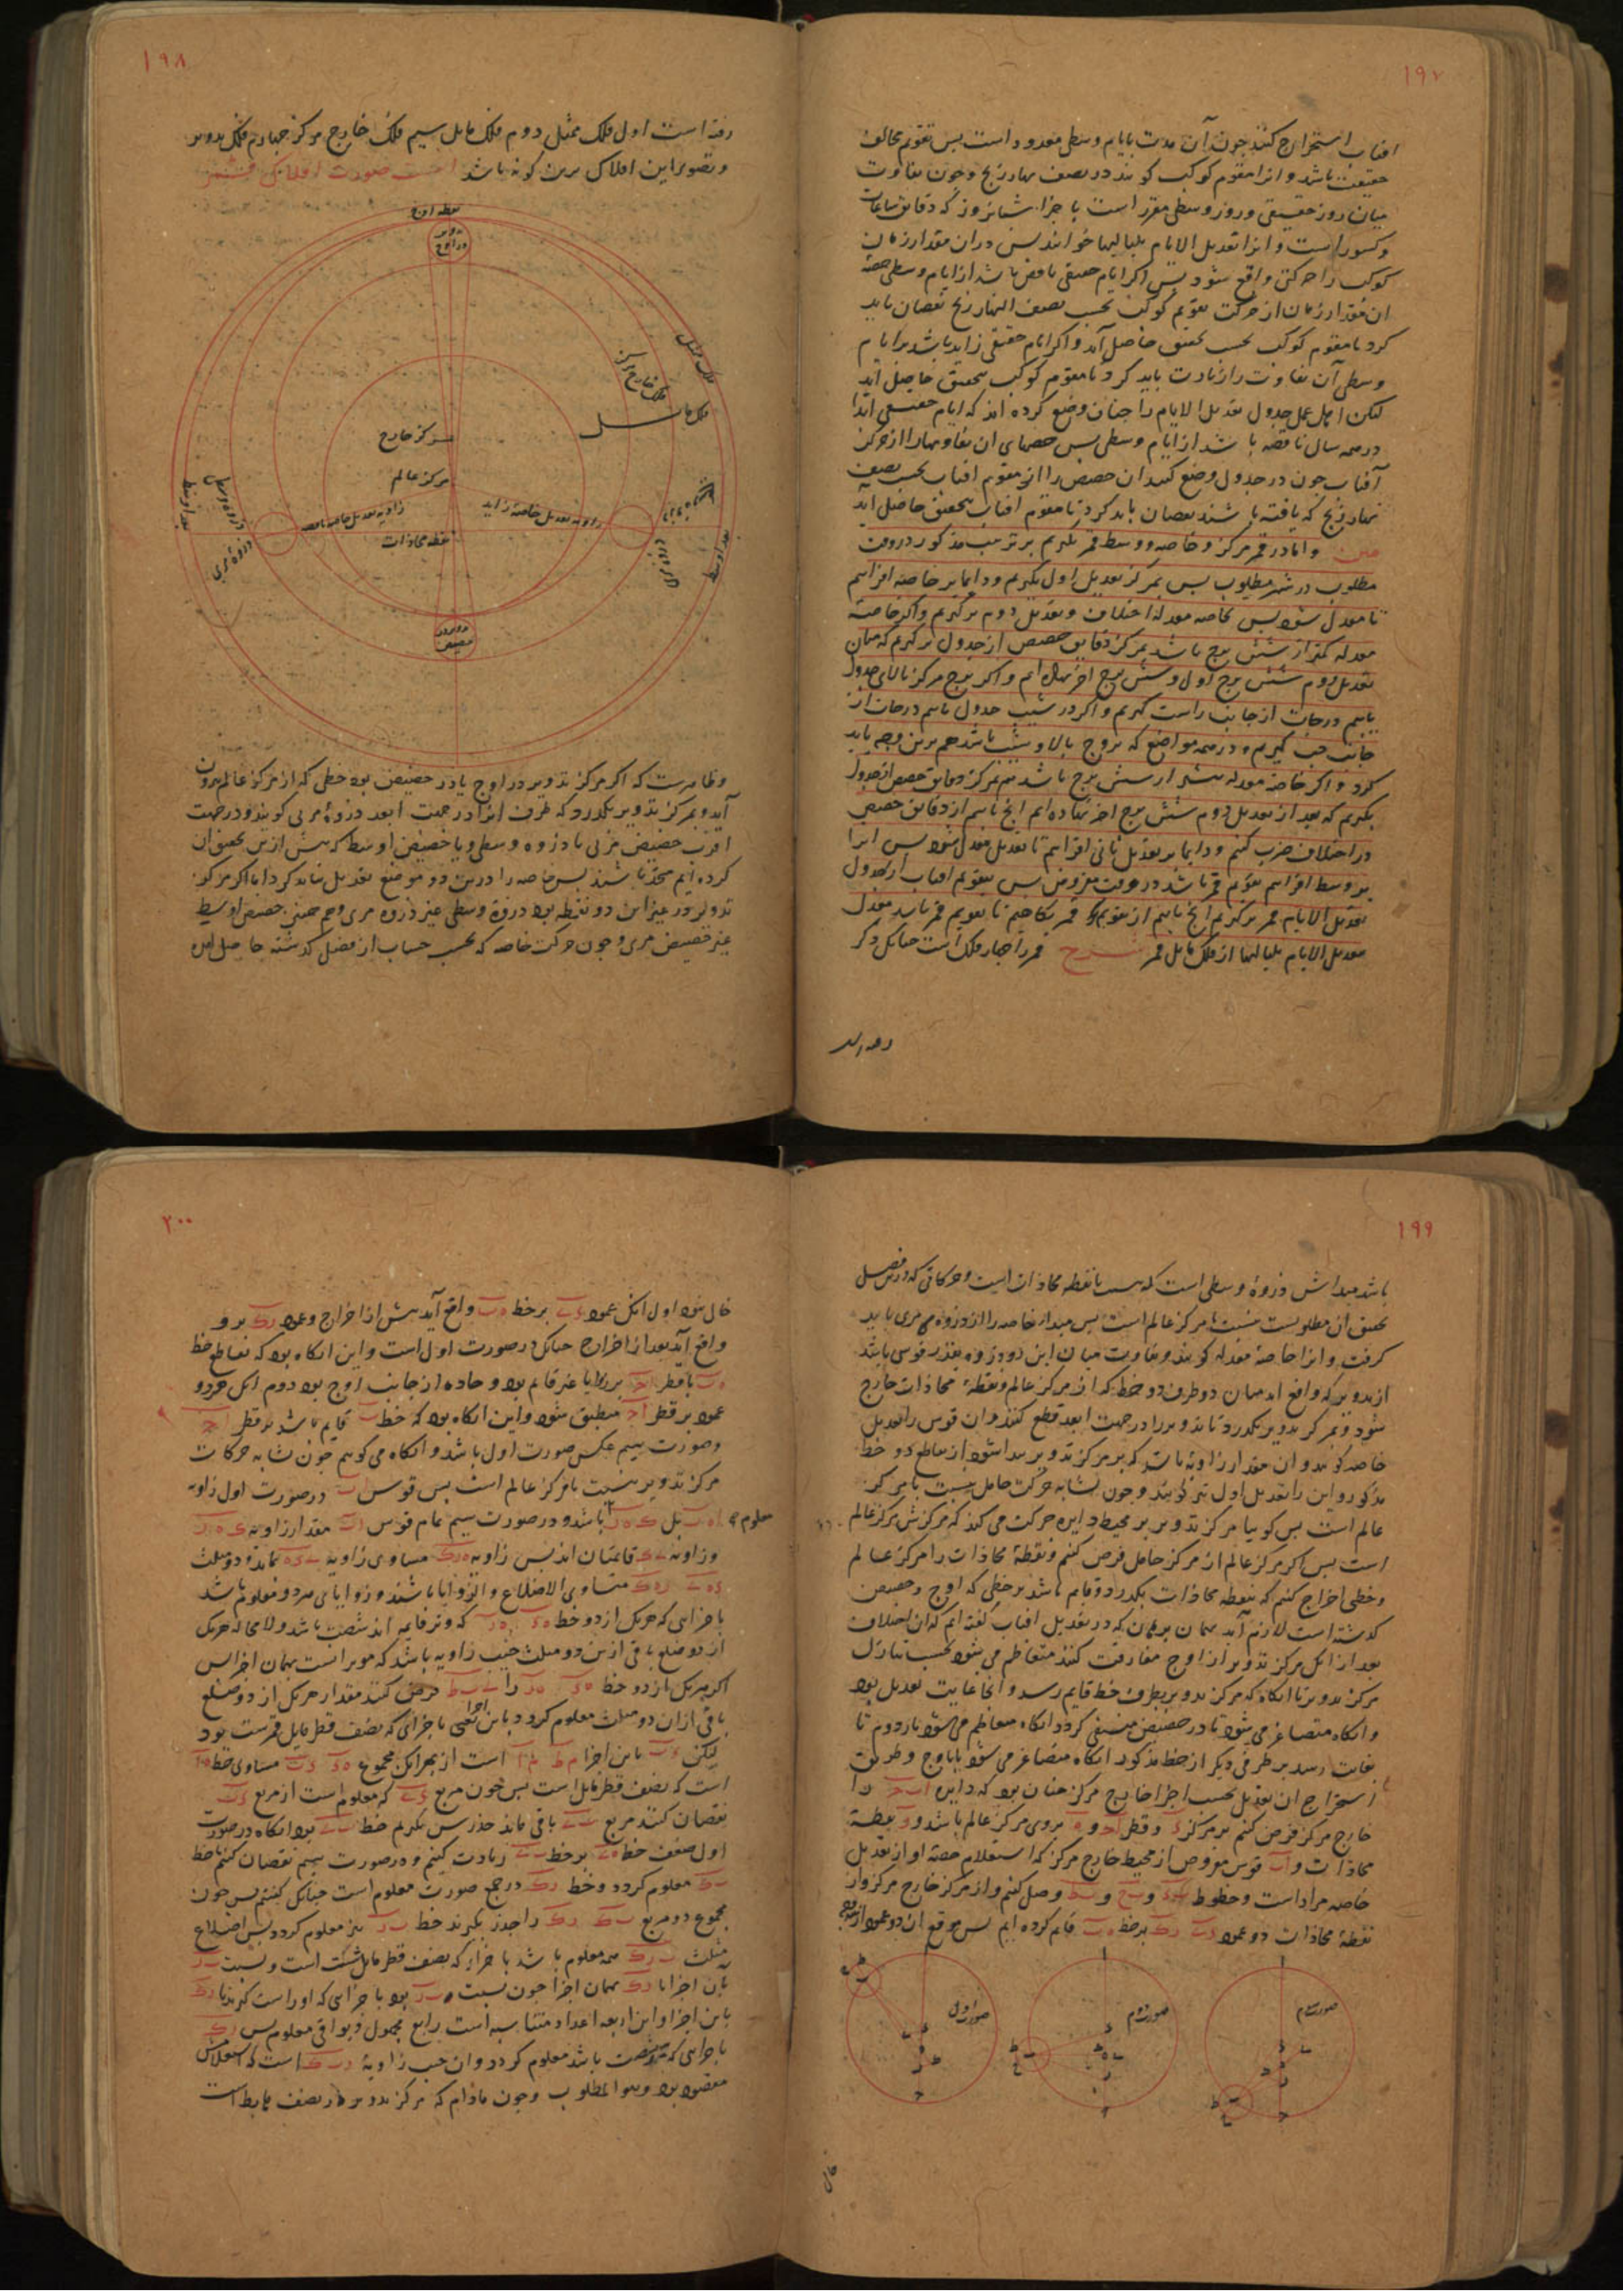 ۱۹۷
افتاب استخراج کنند چون آن مدت بایام وسطی معدود است پس تقویم مخالف
حقیقت باشد و انرا مقوم کوکب کویند در نصف نهار زیج و چون تفاوت
میان روز حقیقی و روز وسطی مقرر است باجزا شبانروز که دقایق ساعات
و کسور است و انرا تعدیل الایام بلیالیها خوانند پس دران مقدار زمان
کوکب را حرکتی واقع شود پس اکر ایام حقیقی ناقص باشد از ایام وسطی حصه
ان مقدار زمان از حرکت تقویم کوکب بحسب نصف النهار زیج نقصان باید
کرد تا مقوم کوکب بحسب تحقیق حاصل آید و اکر ایام حقیقی زاید باشد بر ایام
وسطی آن تفاوت را زیادت باید کرد تا مقوم کوکب بتحقیق حاصل آید
لیکن اهل عمل جدول تعدیل الایام را چنان وضع کرده اند که ایام حقیقی ابدا
در همه سال ناقصه باشد از ایام وسطی پس حصهای ان تفاوتها را از حرکت
آفتاب چون در جدول وضع کنند ان حصص را از مقوم افتاب بحسب نصف
نهار زیج که یافته باشند نقصان باید کرد تا مقوم افتاب بتحقیق حاصل آید
متن و اما در قمر مرکز و خاصه و وسط قمر بکیریم بر ترتیب مذکور در وقت
مطلوب در شهر مطلوب پس بمرکز تعدیل اول بکیریم و دایما بر خاصه افزاییم
تا معدل شود پس بخاصه معدله اختلاف و تعدیل دوم برکیریم و اکر خاصه
معدله کمتر از شش برج باشد بمرکز دقایق حصص از جدول برکیریم که میان
تعدیل دوم شش برج اول و شش برج اخر نهاده ایم و اکر برج مرکز بالای جدول
یابیم درجات از جانب راست کیریم و اکر در شیب جدول یابیم درجات از
جانب چپ کیریم و در همه مواضع که بروج بالا و شیب باشد هم برین وجه باید
کرد و اکر خاصه معدله بیشتر از شش برج باشد هم بمرکز دقایق حصص از جدول
بکیریم که بعد از تعدیل دوم شش برج اخر نهاده ایم انچ یابیم از دقایق حصص
در اختلاف ضرب کنیم و دایما بر تعدیل ثانی افزاییم تا تعدیل معدل شود پس انرا
بر وسط افزاییم مقوم قمر باشد در وقت مفروض پس بتقویم افتاب از جدول
تعدیل الایام قمر برکیریم انچ یابیم از تقویم قمر بکاهیم تا تقویم قمر باشد معدل
بتعدیل الایام بلیالیها از فلک مایل قمر شرح قمر را چهار فلک است چنانک ذکر
۱۹۸
رفته است اول فلک ممثل دوم فلک مایل سیم فلک خارج مرکز چهارم فلک تدویر
و تصویر این افلاک برین کونه باشد اینست صورت افلاک قمر
نقطه اوج
تدویر در اوج
فلک ممثل
فلک خارج مرکز
فلک مایل
مرکز خارج
مرکز عالم
زاویه تعدیل خاصه زاید
زاویه تعدیل خاصه ناقصه
نقطه محاذات
بعد اوسط
ذروه وسطی
ذروه مریی
بعد اوسط
تدویر در حضیض
و ظاهرست که اکر مرکز تدویر در اوج یا در حضیض بود خطی که از مرکز عالم بیرون
آید و بمرکز تدویر بکذرد که طرف انرا در جهت ابعد ذروه مریی کویند و در جهت
اقرب حضیض مریی با ذروه وسطی و با حضیض اوسط که پیش ازین تحقیق ان
کرده ایم متحد باشند پس خاصه را درین دو موضع تعدیل نباید کرد اما اکر مرکز
تدویر در غیر این دو نقطه بود ذروه وسطی غیر ذروه مریی و هم چنین حضیض اوسط
غیر حضیض مریی و چون حرکت خاصه که بحسب حساب از فصل کذشته حاصل امده
۱۹۹
باشد مبداش ذروه وسطی است که بنسبت با نقطه محاذات است و حرکاتی که درین فصل
تحقیق ان مطلوبست بنسبت با مرکز عالم است پس مبدا خاصه را از ذروه مریی باید
کرفت و انرا خاصه معدله کویند و تفاوت میان این دو ذروه بقدر قوسی باشد
از تدویر که واقع اید میان دو طرف دو خط که از مرکز عالم و نقطه محاذات خارج
شود و بمرکز تدویر بکذرد تا تدویر را در جهت ابعد قطع کنند و ان قوس را تعدیل
خاصه کویند و ان مقدار زاویه باشد که بر مرکز تدویر پیدا شود از تقاطع دو خط
مذکور و این را تعدیل اول نیز کویند و چون تشابه حرکت حامل بنسبت با مرکز
عالم است پس کوییا مرکز تدویر بر محیط دایره حرکت می کند که مرکزش مرکز عالم
است پس اکر مرکز عالم از مرکز حامل فرض کنیم و نقطه محاذات را مرکز عالم
و خطی اخراج کنیم که بنقطه محاذات بکذرد و قایم باشد بر خطی که اوج و حضیض
کذشته است لازم آید بهمان برهان که در تعدیل افتاب کفته ایم که ان اختلاف
بعد از انک مرکز تدویر از اوج مفارقت کنند متعاظم می شود بحسب تنازل
مرکز تدویر تا انکاه که مرکز تدویر بطرف خط قایم رسد و انجا غایت تعدیل بود
و انکاه متصاغر می شود تا در حضیض منتفی کردد انکاه متعاظم می شود بار دوم تا
بغایت رسد بر طرفی دیکر از خط مذکور انکاه متصاغر می شود تا باوج و طریق
استخراج ان تعدیل بحسب اجزا خارج مرکز چنان بود که دایره ا ب ج را
خارج مرکز فرض کنیم بر مرکز ء و قطر ا ج و ه بروی مرکز عالم باشد و ر نقطه
محاذات و ا ب قوس مفروض از محیط خارج مرکز که استعلام حصه او از تعدیل
خاصه مراد است و خطوط و وصل کنیم و از مرکز خارج مرکز و از
نقطه محاذات دو عمود بر خط ه ب قایم کرده ایم پس موقع ان دو عمود از سه وجه
صورت اول
صورت دوم
صورت سیم
۲۰۰
خالی نبود اول انک عمود بر خط ه ب واقع آید پیش از اخراج و عمود ر ک برو
واقع آید بعد از اخراج چنانک در صورت اول است و این انکاه بود که تقاطع خط
ه ب با قطر ا ج بر زوایا غیر قایم بود و حاده از جانب اوج بود دوم انک هر دو
عمود بر قطر ا ج منطبق شود و این انکاه بود که خط ب قایم باشد بر قطر ا ج
و صورت سیم عکس صورت اول باشد و انکاه می کوییم چون تشابه حرکات
مرکز تدویر بنسبت با مرکز عالم است پس قوس ا ب در صورت اول زاویه
باشد و در صورت سیم تمام قوس ا ب مقدار زاویه
و زاویه قایمتان اند پس زاویه مساوی زاویه بماند و دو مثلث
متساوی الاضلاع و الزوایا باشند و زوایای هر دو معلوم باشد
باجزایی که هریک از دو خط که وتر قایمه اند شصت باشد و لامحاله هریک
از دو ضلع باقی ازین دو مثلث جیب زاویه باشد که موتر است بهمان اجزا پس
اکر هریک از دو خط را فرض کنند مقدار هریک از دو ضلع
باقی ازان دو مثلث معلوم کردد باین اجزا یعنی باجزای که نصف قطر مایل شصت بود
لیکن باین اجزا است از بهر انک مجموع مساوی خط
است که نصف قطر مایل است پس چون مربع که معلوم است از مربع
نقصان کنند مربع باقی ماند جذرش بکیریم خط بود انکاه در صورت
اول ضعف خط بر خط زیادت کنیم و در صورت سیم نقصان کنیم تا خط
معلوم کردد و خط ر ک در هر صورت معلوم است چنانک کفتیم پس چون
مجموع دو مربع را جذر بکیرند خط نیز معلوم کردد پس اضلاع
مثلث همه معلوم باشد باجزا که نصف قطر مایل شصت است و نسبت
بان اجزا با ر ک بهمان اجزا چون نسبت بود باجزایی که او راست کیرند با ر ک
باین اجزا و این اربعه اعداد متناسبه است رابع مجهول و بواقی معلوم پس ر ک
باجزایی که شصت باشد معلوم کردد و ان جیب زاویه است که استعلامش
مقصود بود و هو المطلوب و چون مادام که مرکز تدویر در نصف هابط است